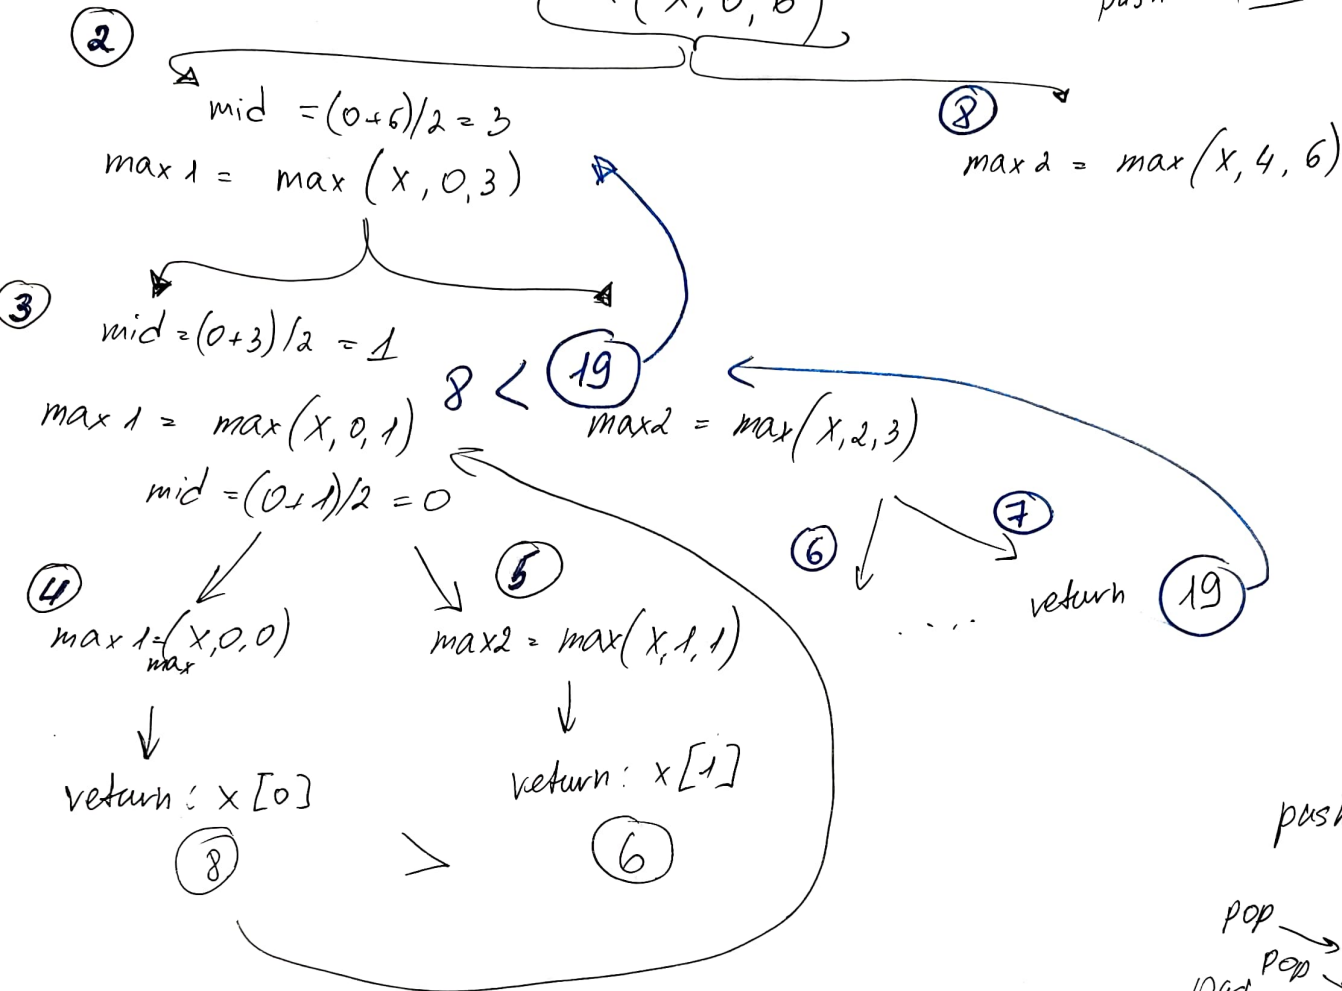 (x, 0, 6)
push
2
mid = (0+6)/2 = 3
max 1 = max (x, 0,3)
8
max 2 = max (x, 4, 6)
3
mid = (0+3)/2 = 1
8 < 19
max 1 = max(x, 0, 1)
max2 = max(x,2,3)
mid = (0+1)/2 = 0
6
7
4
5
return 19
....
max 1=(x,0,0)
max
max2 = max(x,1,1)
return: x [0]
return: x [1]
8 > 6
pop
pop